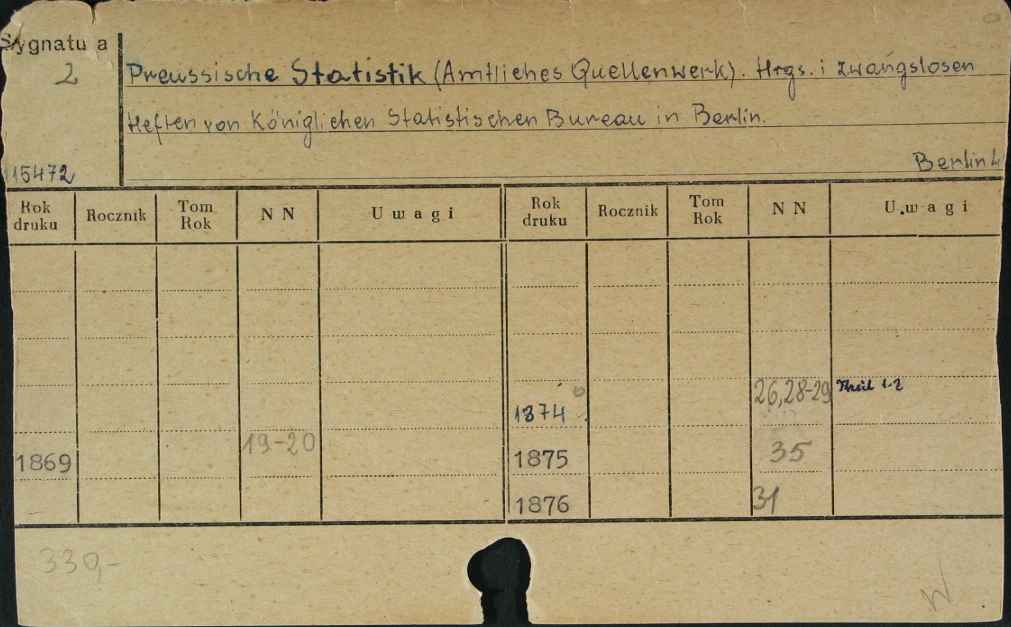 Sygnatura
2
Preussische Statistik (Amtliches Quellenwerk). Hrgs. i zwangslosen
Heften von Königlichen Statistischen Bureau in Berlin.
15472
Berlin
Rok druku Rocznik Tom Rok NN Uwagi Rok druku Rocznik Tom Rok NN Uwagi
1874 26,28-29 Theil 1-2
1869 19-20 1875 35
1876 31
330,-
W